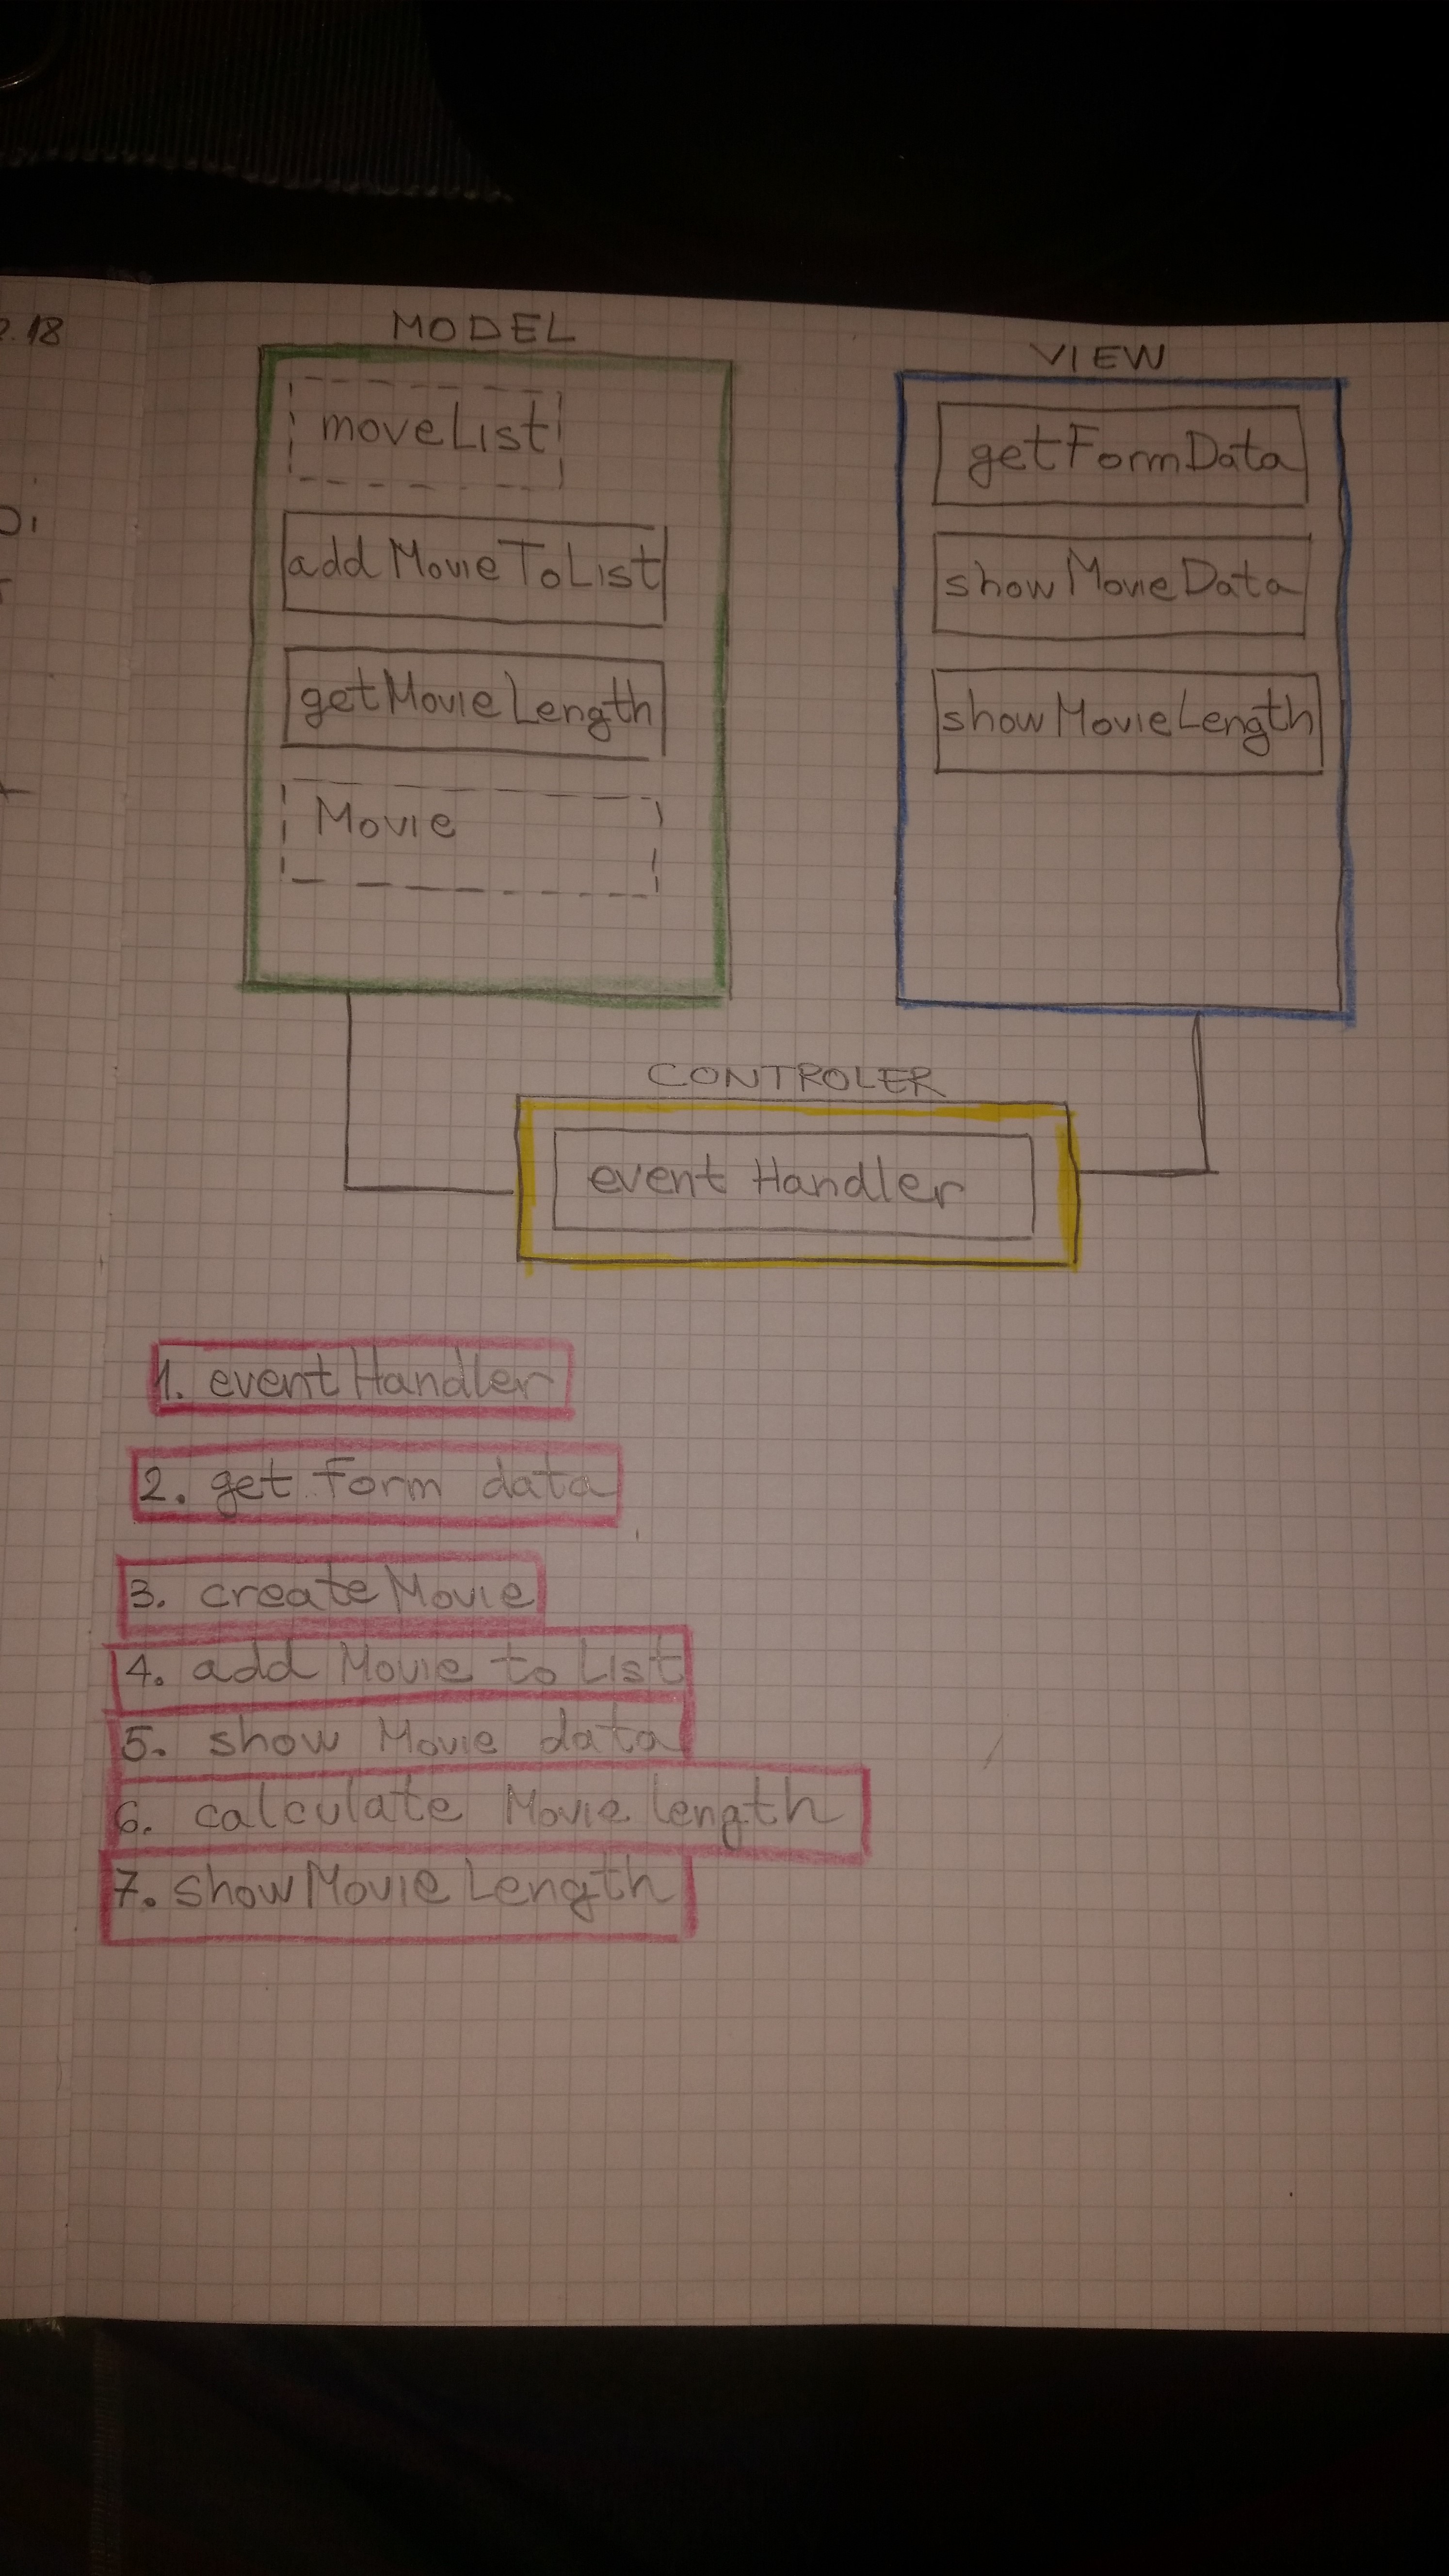 .18
MODEL
moveList
addMovieToList
getMovieLength
Movie
VIEW
getFormData
showMovieData
showMovieLength
CONTROLER
event Handler
1. eventHandler
2. get form data
3. createMovie
4. add Movie to List
5. show Movie data
6. calculate Movie length
7. showMovieLength